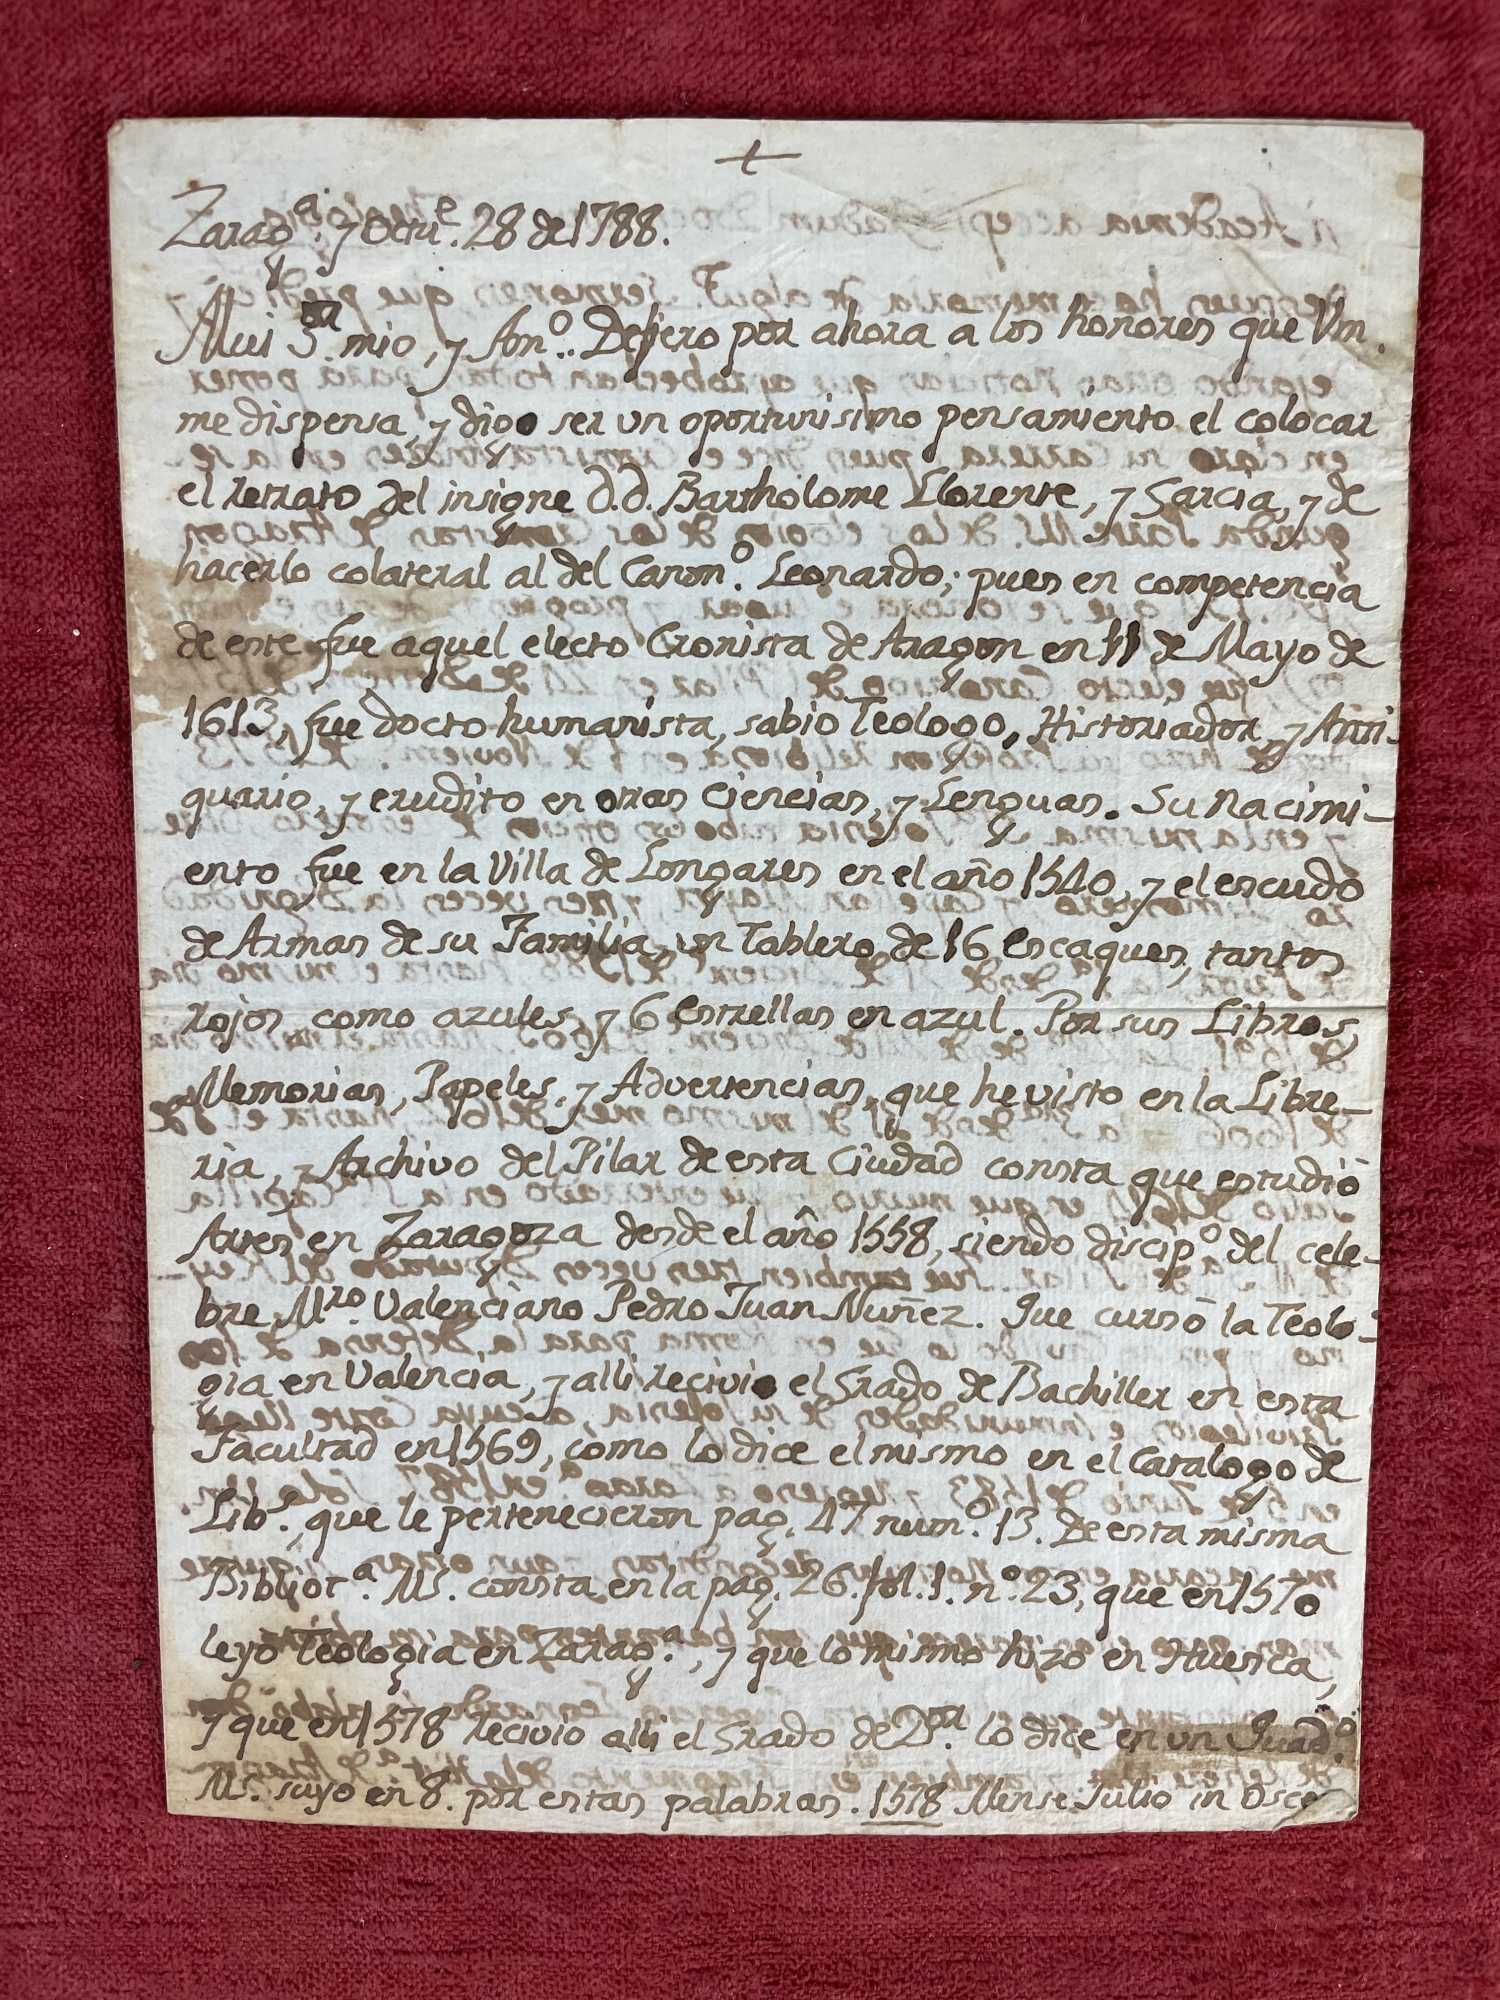 +
Zarag.ª y Octu.ᵉ 28 de 1788.
Mui S.ᵒʳ mio, y Am.º. Defiero por ahora a los honores que Vm.
me dispensa, y digo ser un oportunisimo pensamiento el colocar
el retrato del insigne D.D. Bartholome Llorente, y Garcia, y de
hacerlo colateral al del Canon.º Leonardo; pues en competencia
de este fue aquel electo Cronista de Aragon en 11 de Mayo de
1613, fue docto humanista, sabio Teologo, Historiador, y Anti-
quario, y erudito en otras Ciencias, y Lenguas. Su nacimi-
ento fue en la Villa de Longares en el año 1540, y el escudo
de Armas de su Familia, un Tablero de 16 Escaques, tantos
rojos como azules, y 6 estrellas en azul. Por sus Libros,
Memorias, Papeles, y Advertencias, que he visto en la Libre-
ria, y Archivo del Pilar de esta Ciudad consta que estudió
Artes en Zaragoza desde el año 1558, siendo discip.º del cele-
bre M.ʳᵒ Valenciano Pedro Juan Nuñez. Que cursó la Teolo-
gia en Valencia, y alli recivio el Grado de Bachiller en esta
Facultad en 1569, como lo dice el mismo en el Catalogo de
Lib.ˢ, que le pertenecieron pag. 47 num.º 13. De esta misma
Bibliot.ª Ms. consta en la pag. 26. fol. 1. n.º 23, que en 1570
leyo Teologia en Zarag.ª, y que lo mismo hizo en Huesca,
y que en 1578 recivio alli el Grado de D.ᵒʳ lo dice en un Quad.º
Ms. suyo en 8. por estas palabras. 1578 Mense Julio in Osce